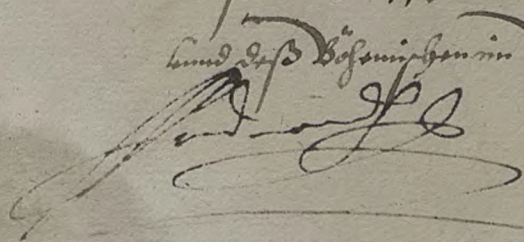 unnd deß Böhemischen im
Ferdinandt